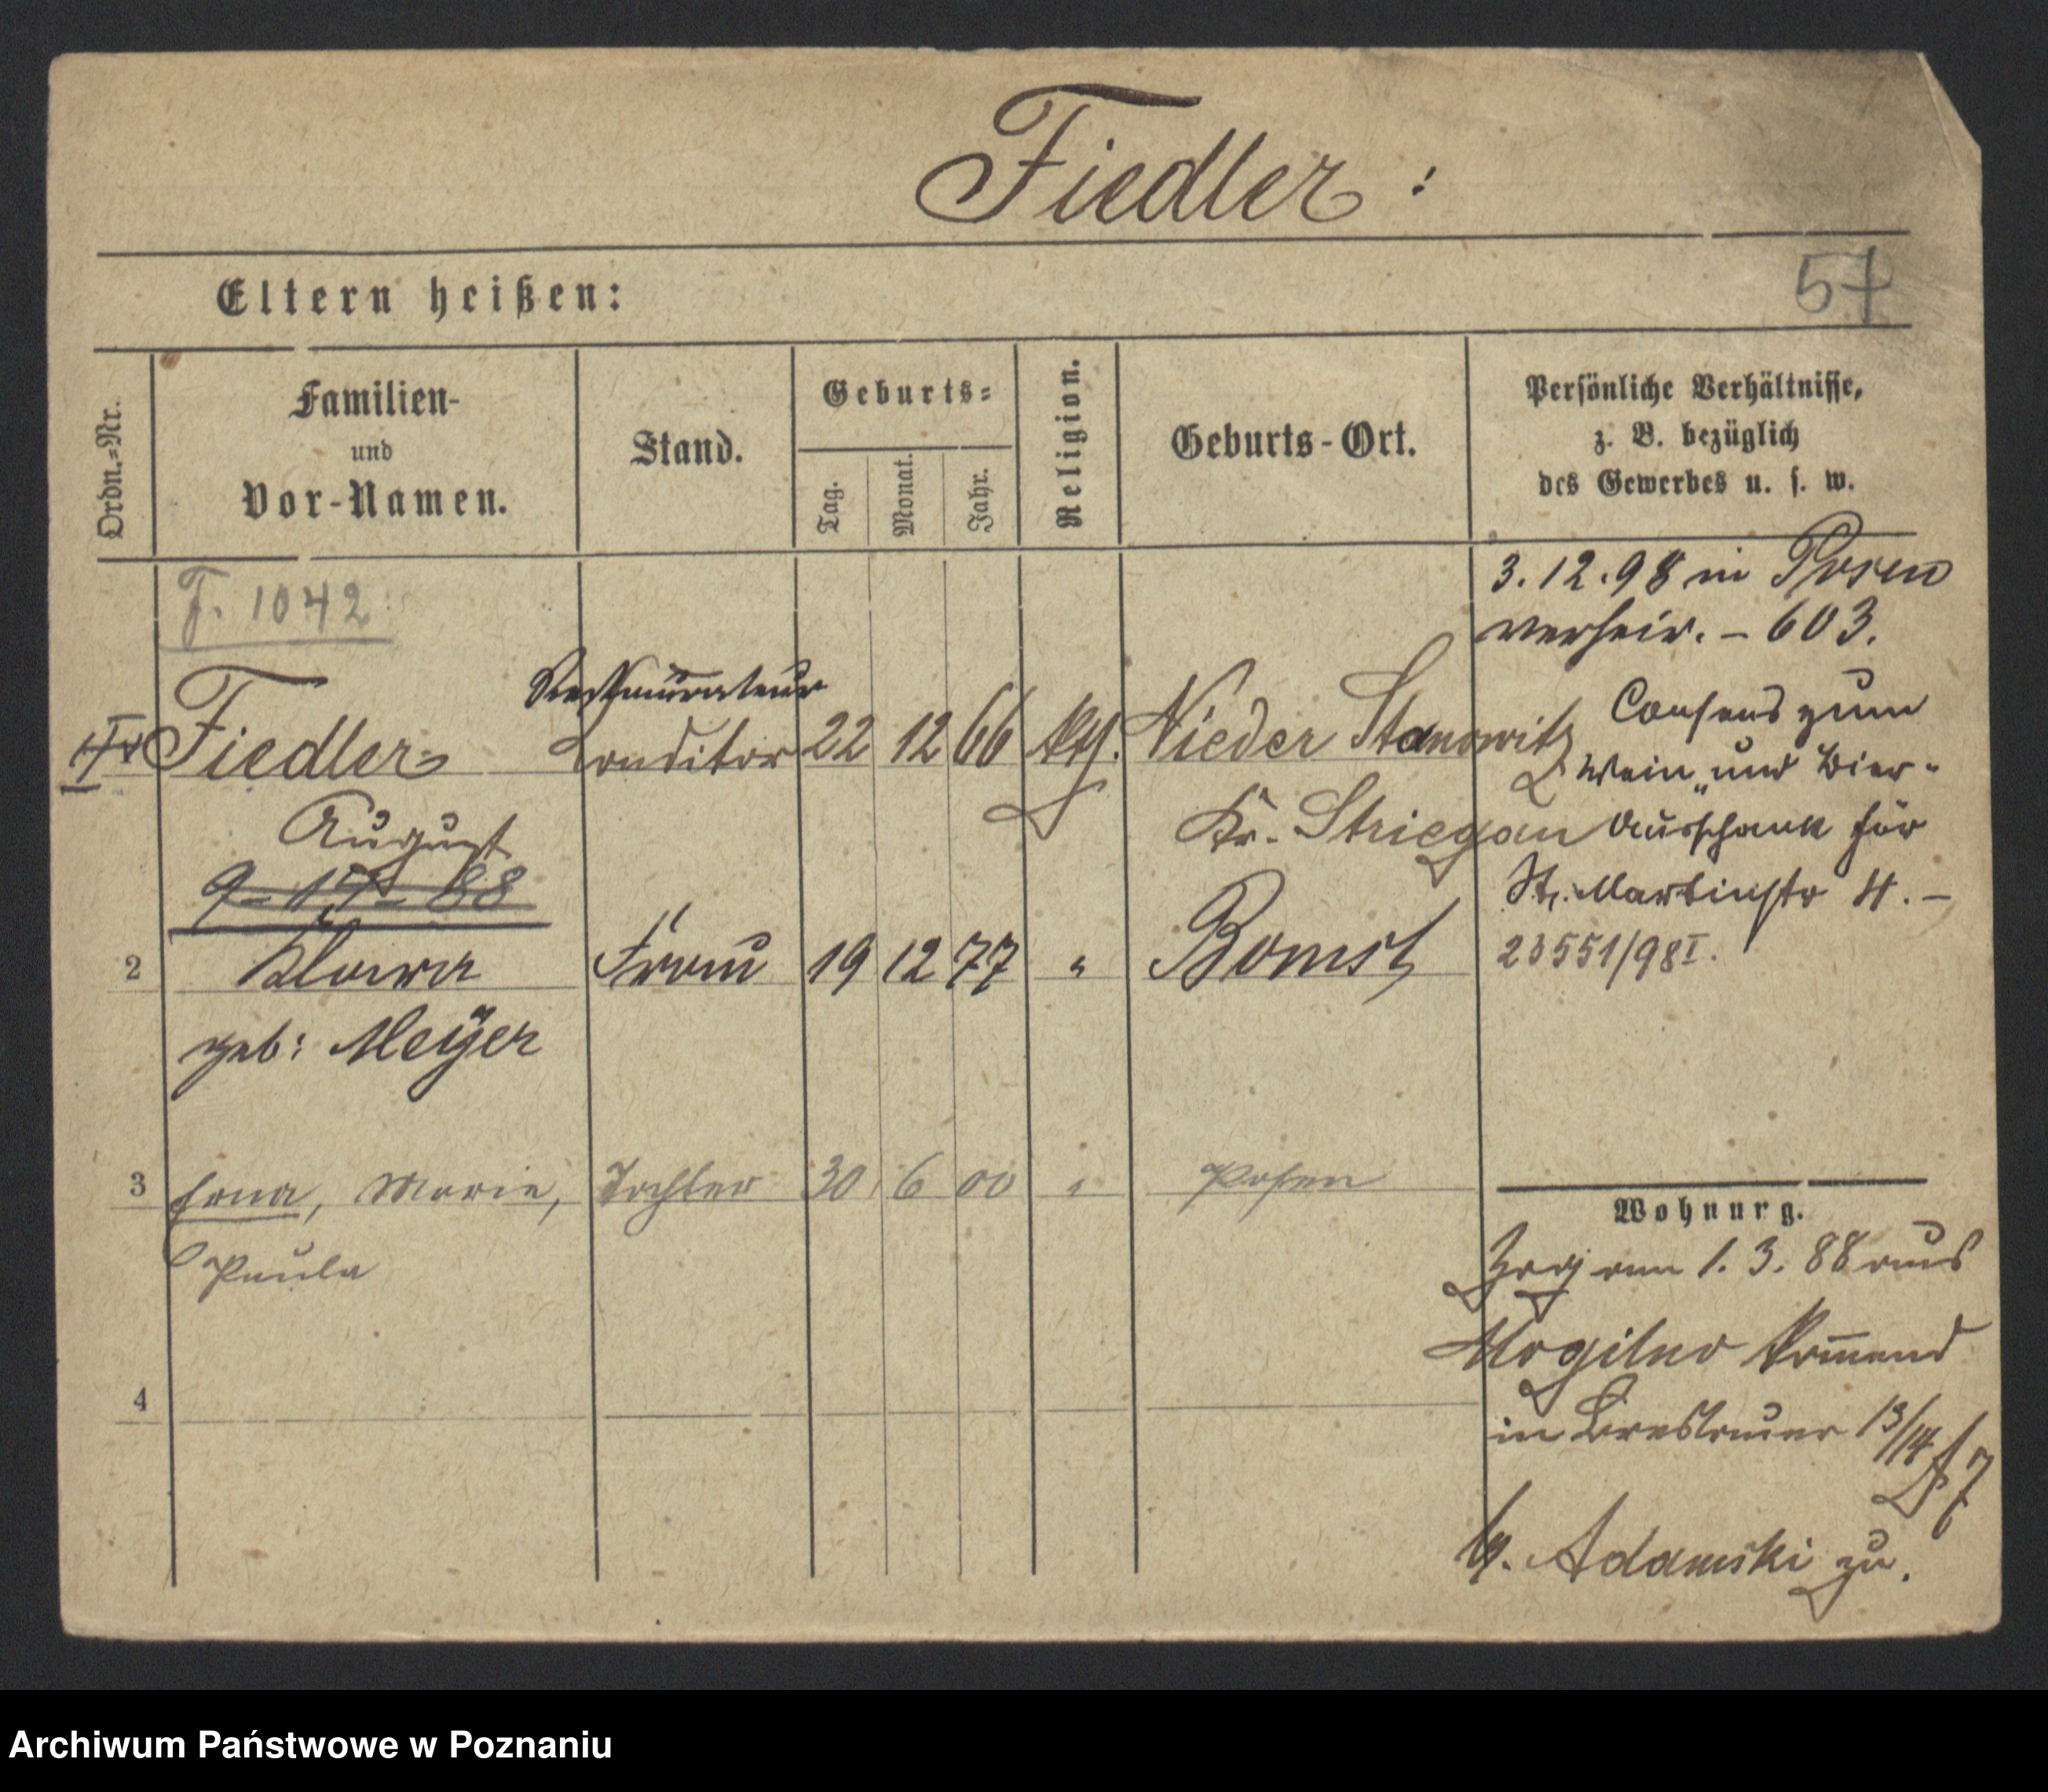 Fiedler:
Eltern heißen:
57
Ordn.=Nr.
Familien-
und
Vor-Namen.
Stand.
Geburts=
Tag.
Monat.
Jahr.
Religion.
Geburts-Ort.
Persönliche Verhältnisse,
z. B. bezüglich
des Gewerbes u. s. w.
F. 1042
3. 12. 98 in Posen
verheir. – 603.
Restaurateur
Fiedler Conditor 22 12 66 Nieder Stanowitz
August
Kr. Striegau
Consens zum
Wein- und Bier-
Ausschank für
St. Martinstr 4. –
23551/98 I.
9 - 17 - 88
2 Klara Frau 19 12 77 " Bomst
geb: Meÿer
3 Erna, Marie, Tochter 30 6 00 " Posen
Paula
4
Wohnung.
Zog am 1. 3. 88 aus
Mogilno kommend
in Breslauer 13/14
b. Adamski zu.
Archiwum Państwowe w Poznaniu